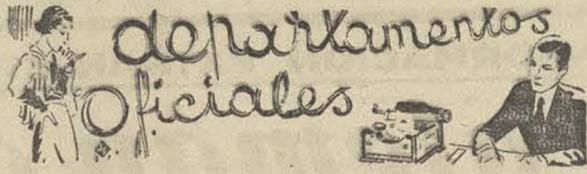 departamentos
Oficiales